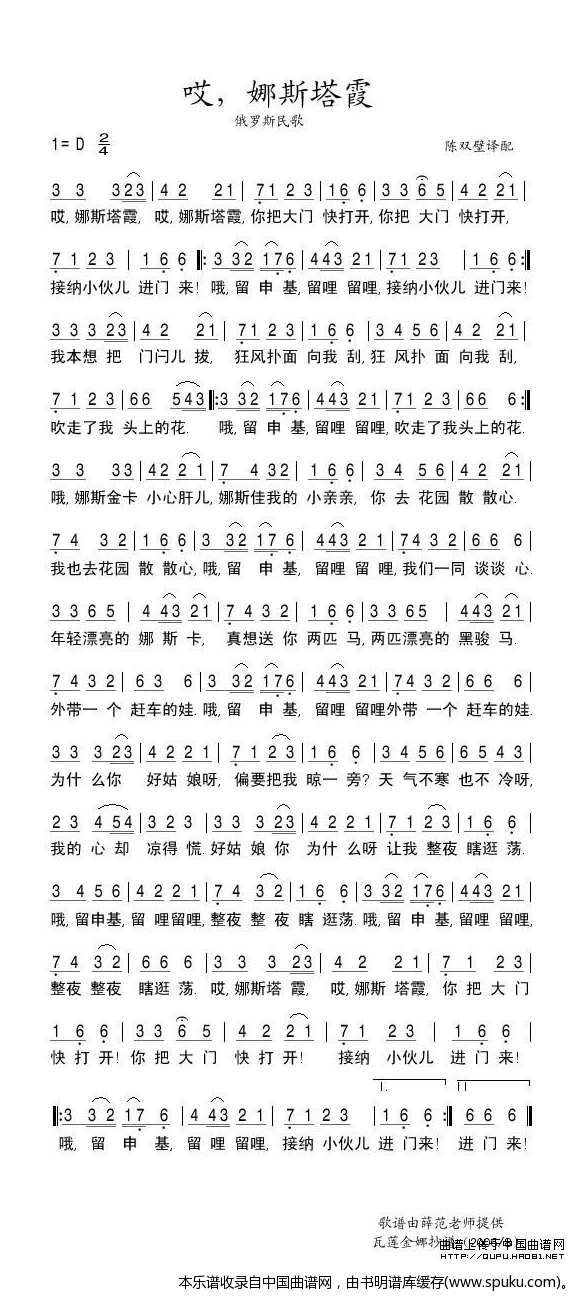 哎，娜斯塔霞
俄罗斯民歌
1= D 2/4
陈双壁译配
3 3 3 2 3 | 4 2 2 1 | 7 1 2 3 | 1 6 6 | 3 3 6 5 | 4 2 2 1 |
哎,娜斯塔霞, 哎,娜斯塔霞,你把大门 快打开,你把 大门 快打开,
7 1 2 3 | 1 6 6 |: 3 3 2 1 7 6 | 4 4 3 2 1 | 7 1 2 3 | 1 6 6 :|
接纳小伙儿 进门来! 哦,留 申基,留哩 留哩,接纳小伙儿 进门来!
3 3 3 2 3 | 4 2 2 1 | 7 1 2 3 | 1 6 6 | 3 4 5 6 | 4 2 2 1 |
我本想 把 门闩儿 拔, 狂风扑面 向我 刮,狂 风扑 面 向我 刮,
7 1 2 3 | 6 6 5 4 3 |: 3 3 2 1 7 6 | 4 4 3 2 1 | 7 1 2 3 | 6 6 6 :|
吹走了我 头上的花. 哦,留 申 基,留哩 留哩,吹走了我头上的花.
3 3 3 3 | 4 2 2 1 | 7 4 3 2 | 1 6 6 | 3 3 6 5 | 4 2 2 1 |
哦,娜斯金卡 小心肝儿,娜斯佳我的 小亲亲, 你 去 花园 散 散心.
7 4 3 2 | 1 6 6 | 3 3 2 1 7 6 | 4 4 3 2 1 | 7 4 3 2 | 6 6 6 |
我也去花园 散 散心,哦,留 申 基, 留哩 留 哩,我们一同 谈谈 心.
3 3 6 5 | 4 4 3 2 1 | 7 4 3 2 | 1 6 6 | 3 3 6 5 | 4 4 3 2 1 |
年轻漂亮的 娜 斯 卡, 真想送 你 两匹 马,两匹漂亮的 黑骏 马.
7 4 3 2 | 6 3 6 | 3 3 2 1 7 6 | 4 4 3 2 1 | 7 4 3 2 | 6 6 6 |
外带一 个 赶车的娃. 哦,留 申 基, 留哩 留哩外带 一 个 赶车的娃.
3 3 3 2 3 | 4 2 2 1 | 7 1 2 3 | 1 6 6 | 3 4 5 6 | 4 2 2 1 |
为什 么你 好姑 娘呀, 偏要把我 晾一 旁? 天 气不寒 也不 冷呀,
2 3 4 5 4 | 3 2 3 | 3 3 2 3 | 4 2 2 1 | 7 1 2 3 | 1 6 6 |
我的 心 却 凉得 慌.好姑 娘 你 为什 么呀 让我 整夜 瞎逛 荡.
3 4 5 6 | 4 4 3 2 1 | 7 4 3 2 | 1 6 6 | 3 3 2 1 7 6 | 4 4 3 2 1 |
哦,留申基,留 哩留哩,整夜 整 夜 瞎 逛荡.哦,留 申基,留哩 留哩,
7 4 3 2 | 6 6 6 | 3 3 3 2 3 | 4 2 2 1 | 7 1 2 3 |
整夜 整夜 瞎逛 荡. 哎,娜斯塔 霞, 哎,娜斯 塔霞, 你 把大 门
1 6 6 | 3 3 6 5 | 4 2 2 1 | 7 1 2 3 | 1 6 6 |
快打 开! 你 把大 门 快打 开! 接纳 小伙儿 进 门来!
1. 11
|: 3 3 2 1 7 6 | 4 4 3 2 1 | 7 1 2 3 | 1 6 6 :| 1 6 6 ||
哦, 留 申 基, 留 哩 留哩, 接纳小伙儿 进 门来! 进 门来!
歌谱由薛范老师提供
瓦莲金娜抄谱
曲谱上传于中国曲谱网
HTTP://QUPU.HAO81.NET
本乐谱收录自中国曲谱网，由书明谱库缓存(www.spuku.com)。